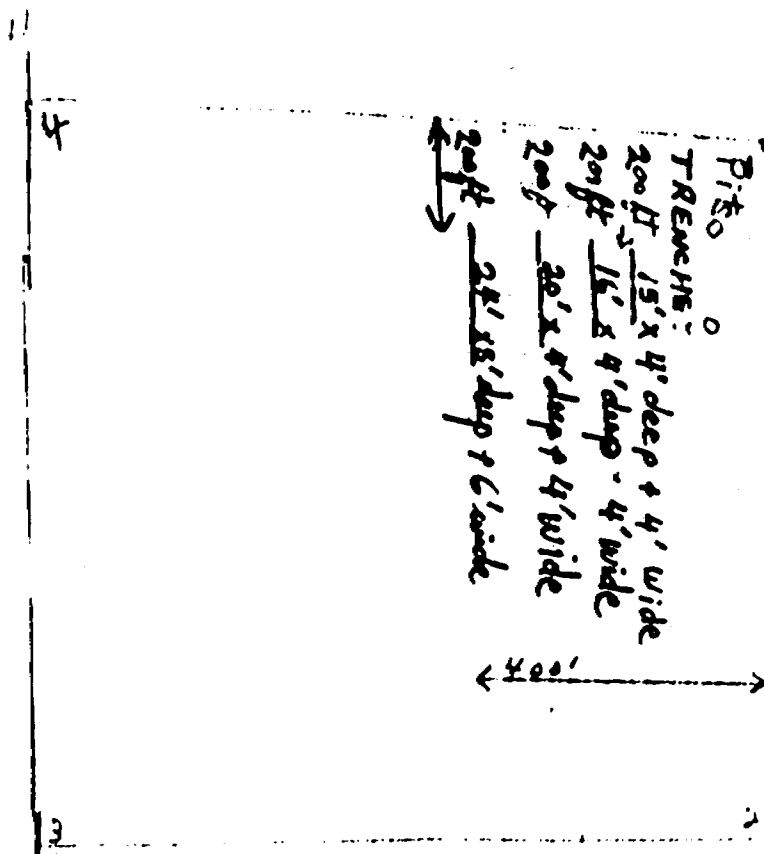 Pits
TRENCHE:
200 ft 15' x 4' deep + 4' wide
200 ft 16' x 4' deep - 4' wide
200 ft 20' x 4' deep + 4' wide
200 ft 24' x 8' deep + 6' wide
400'
4
3
2